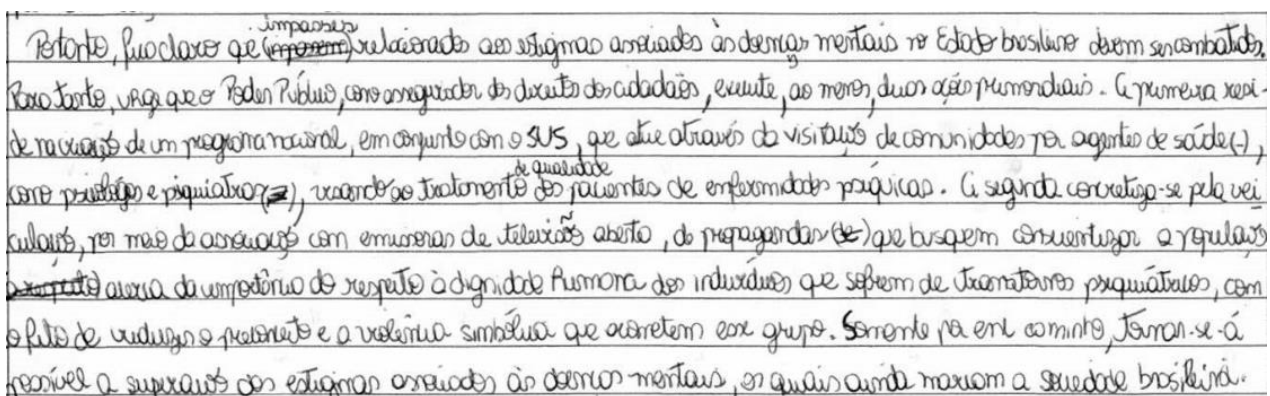 Portanto, fica claro que impasses relacionados aos estigmas associados às doenças mentais no Estado brasileiro devem ser combatidos.
Para tanto, urge que o Poder Público, como assegurador dos direitos dos cidadãos, execute, ao menos, duas ações primordiais. A primeira resi-
de na criação de um programa nacional, em conjunto com o SUS, que atue através da visitação de comunidades por agentes de saúde (-),
como psicólogos e psiquiatras, visando ao tratamento de qualidade dos pacientes de enfermidades psíquicas. A segunda concretiza-se pela vei
culação, por meio da associação com emissoras de televisão aberta, de propagandas que busquem conscientizar a população
acerca da importância do respeito à dignidade humana dos indivíduos que sofrem de transtornos psiquiátricos, com
o fito de reduzir o preconceito e a violência simbólica que acometem esse grupo. Somente por esse caminho, tornar-se-á
possível a superação dos estigmas associados às doenças mentais, os quais ainda marcam a sociedade brasileira.